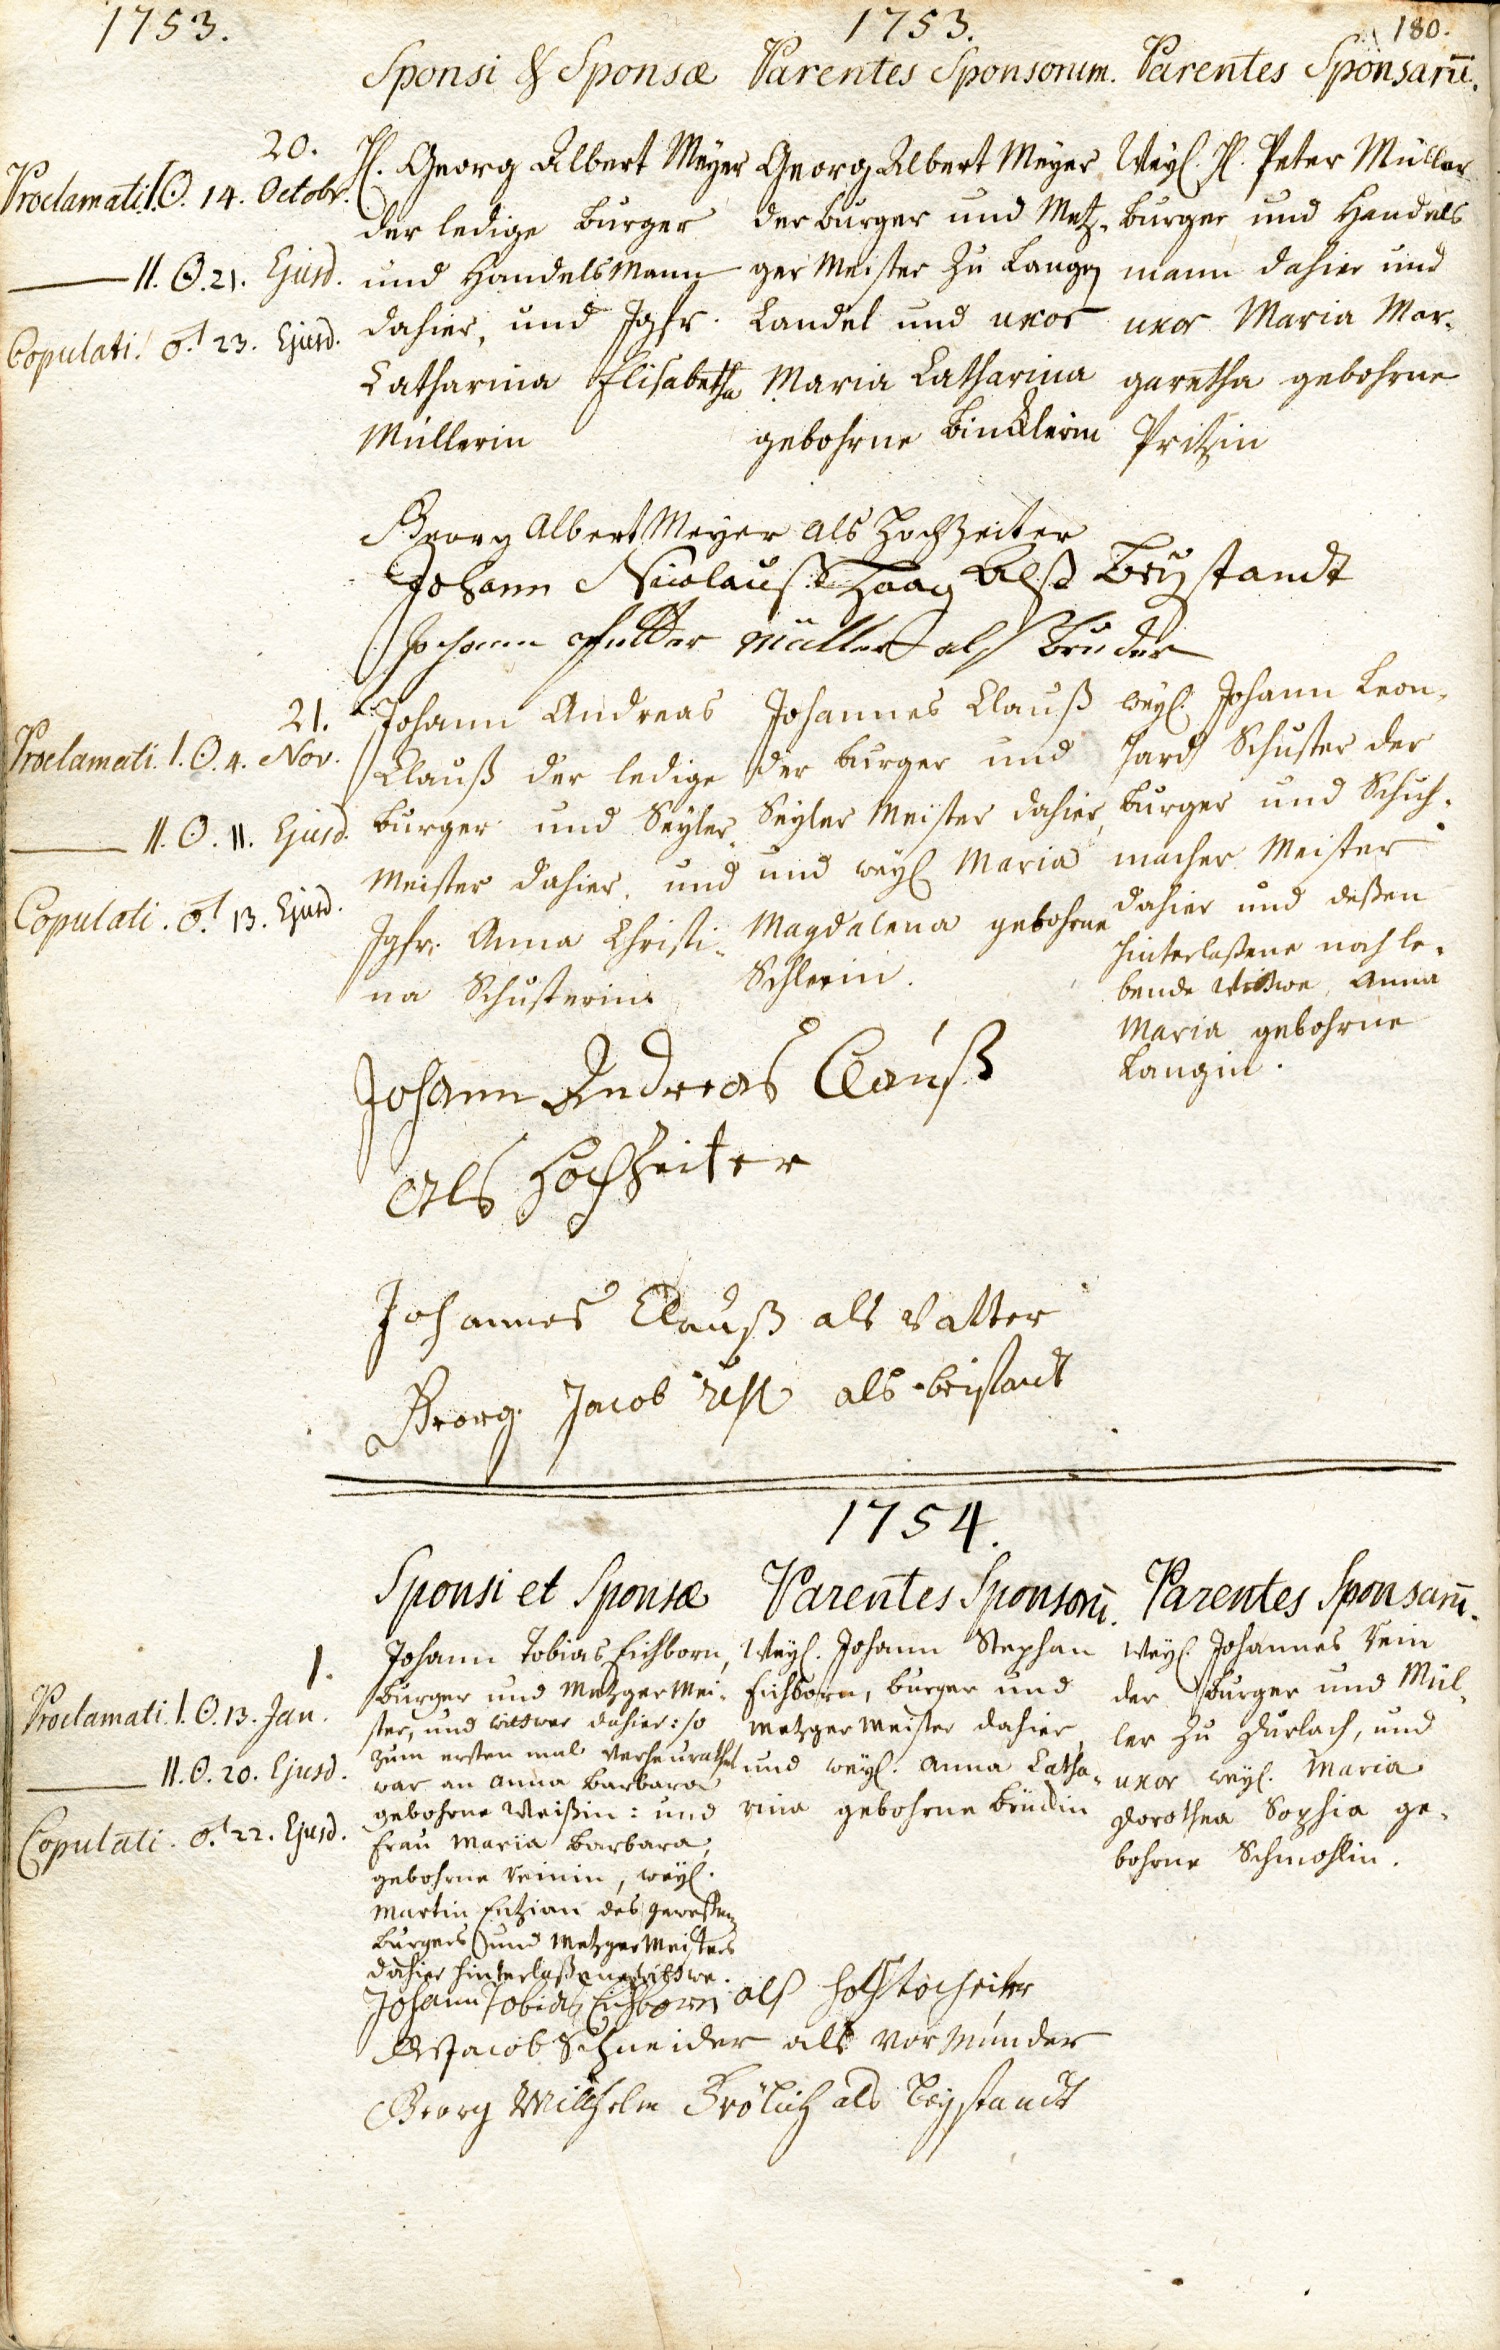 1753.
1753.
180.
Sponsi & Sponsæ
Parentes Sponsorum.
Parentes Sponsarū.
20.
Proclamati. I. ☉. 14. Octobr.
II. ☉. 21. Ejusd.
Copulati. ♂. 23. Ejusd.
H. Georg Albert Meyer
der ledige burger
und HandelsMann
dahier, und Jgfr.
Catharina Elisabetha
Müllerin
Georg Albert Meyer
der burger und Metz-
ger Meister zu Langen
Candel und uxor
Maria Catharina
gebohrne Bincklerin
Weyl. H. Peter Müller
burger und Handels
mann dahier und
uxor Maria Mar-
garetha gebohrne
Pritzin
Georg Albert Meyer als Hochzeiter
Johann Nicolauß Haag Alß Beystandt
Johann Petter Müller alß Bruder
21.
Proclamati. I. ☉. 4. Nov.
II. ☉. 11. Ejusd.
Copulati. ♂. 13. Ejusd.
Johann Andreas
Clauß der ledige
burger und Seyler-
Meister dahier, und
Jgfr. Anna Christi-
na Schusterin
Johannes Clauß
der burger und
Seyler Meister dahier,
und weyl Maria
Magdalena gebohrne
weyl. Johann Leon-
hard Schuster der
burger und Schuh-
macher Meister
dahier und deßen
hinterlaßene noch le-
bende Wittwe, Anna
Maria gebohrne
Langin.
Johann Andreas Clauß
Als Hochzeiter
Johannes Clauß als Vatter
Georg Jacob als beistandt
1754.
Sponsi et Sponsæ
Parentes Sponsorū.
Parentes Sponsarū.
1.
Proclamati. I. ☉. 13. Jan.
II. ☉. 20. Ejusd.
Copulati. ♂. 22. Ejusd.
Johann Tobias Eichborn,
burger und Metzger Mei-
ster, und wittwer dahier: so
zum ersten mal verheurathet
war an Anna Barbara
gebohrne Weißin: und
Frau Maria Barbara,
gebohrne Veinin, weyl.
Martin Entzian des geweßen
burgers und MetzgerMeisters
dahier hinterlaßene wittwe.
Weyl. Johann Stephan
Eichborn, burger und
Metzger Meister dahier,
und weyl. Anna Catha-
rina gebohrne
Weyl. Johannes Vein
der burger und Mül-
ler zu Durlach, und
uxor weyl. Maria
Dorothea Sophia ge-
bohrne Schmohlin.
Johann Tobias Eichborn als
Jacob Schneider als vormünder
Georg Willhelm Frölich als beystandt